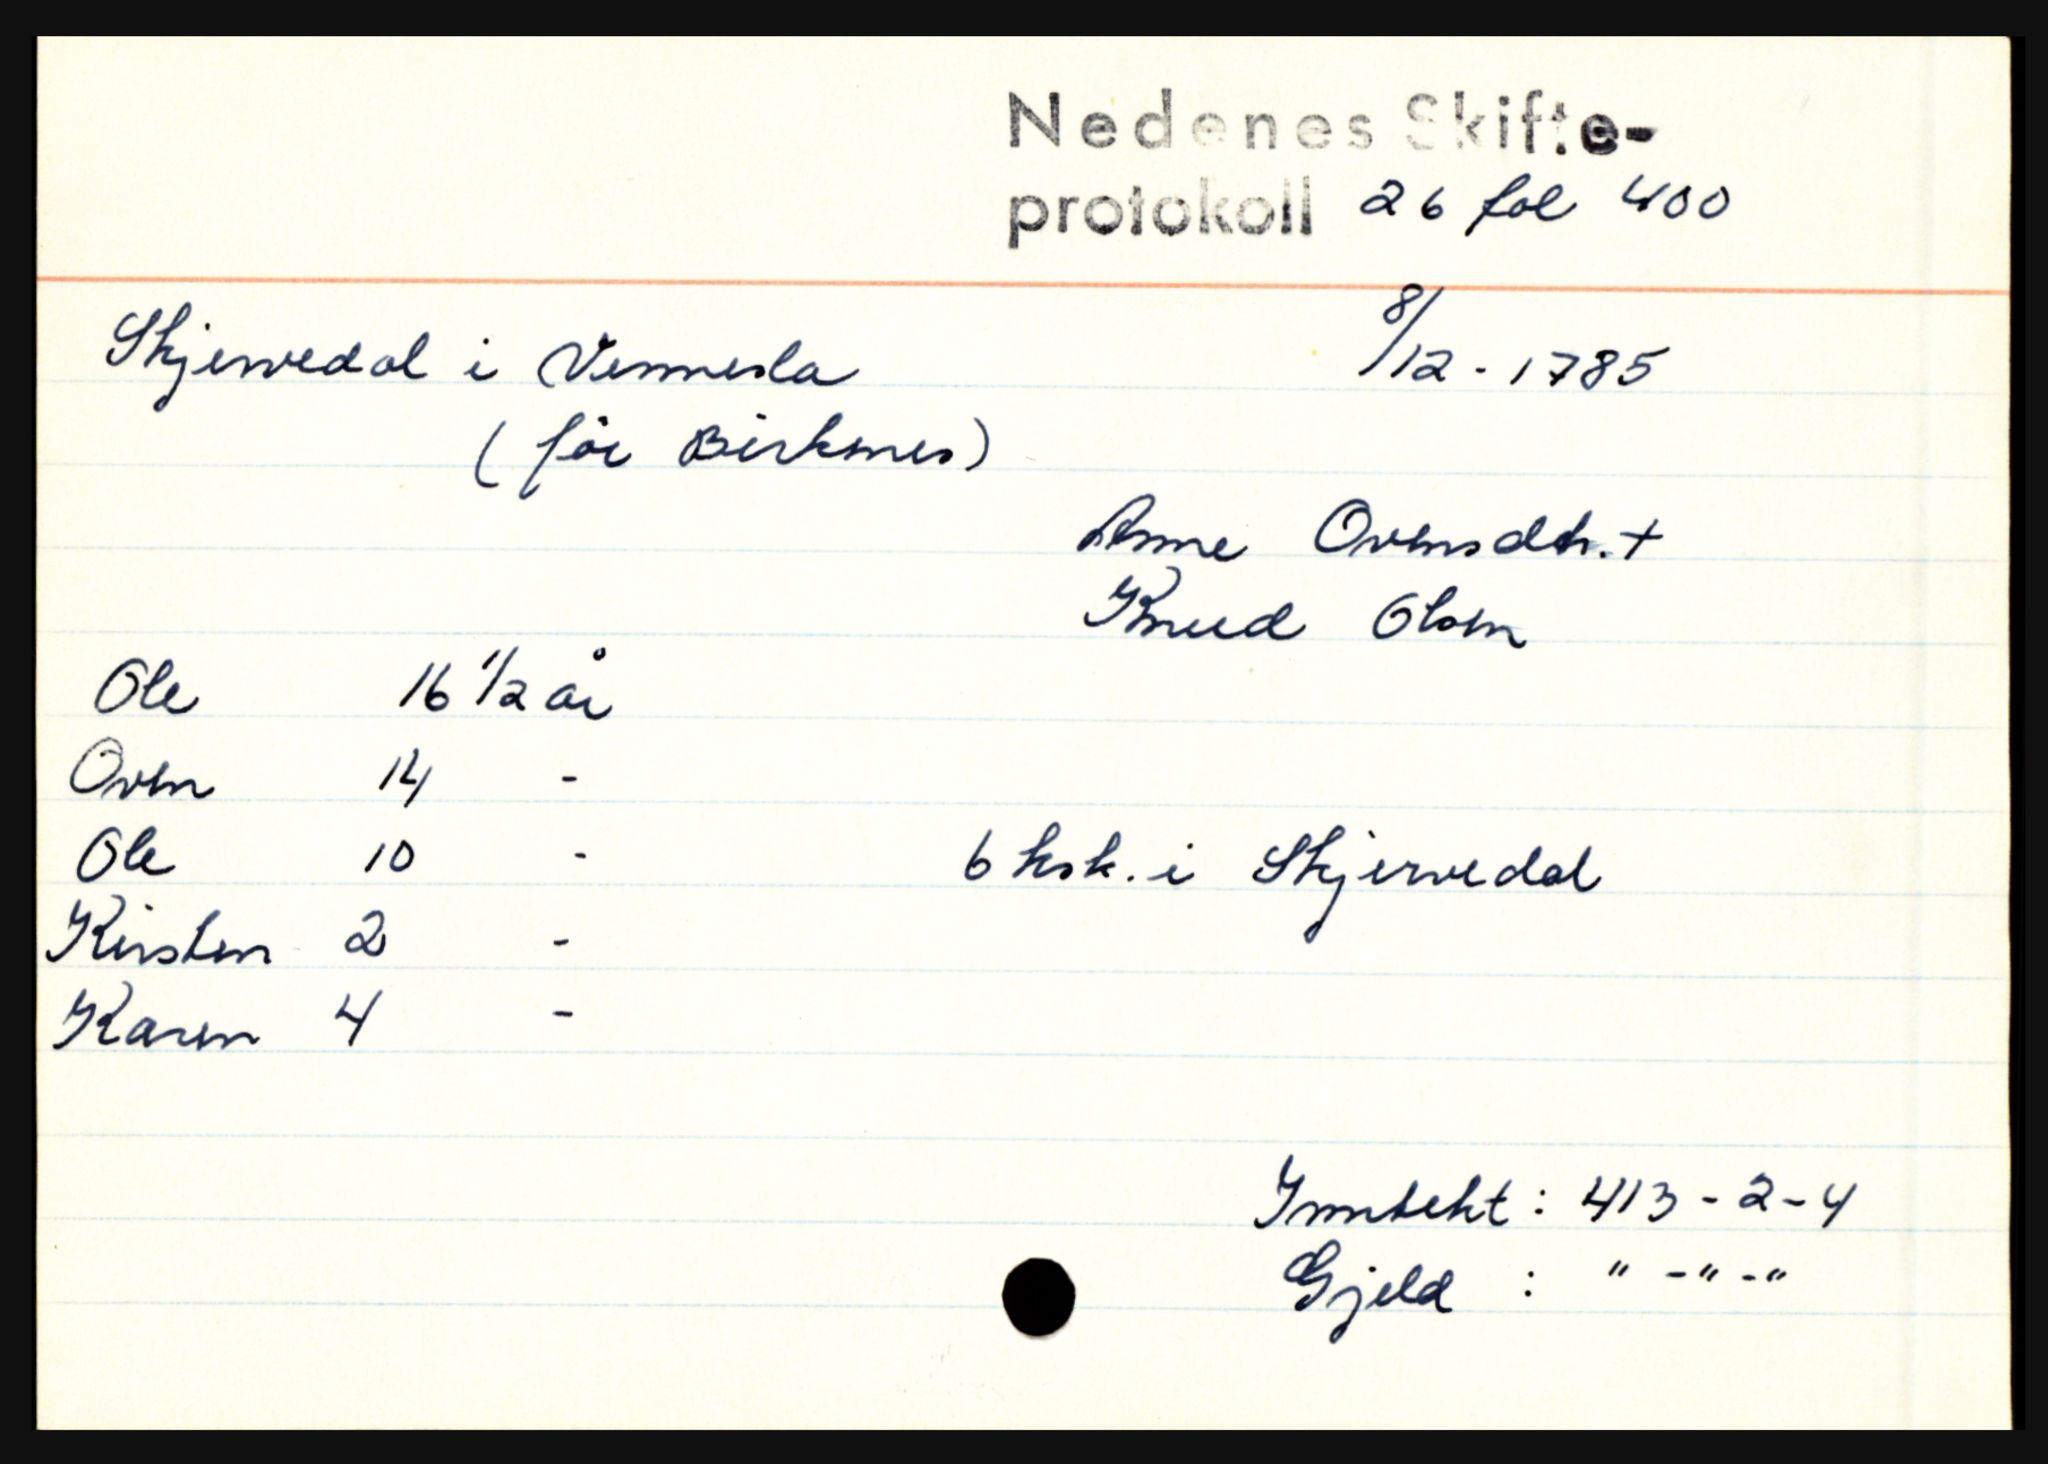 Nedenes Skifte-
protokoll 26 fol 400
Skjervedal i Vennesla 8/12 - 1785
(før Birkenes)
Anne Ovensdtr. +
Knud Olsen
Ole 16 1/2 år
Oven 14 -
Ole 10 - 6 ksk. i Skjervedal
Kirsten 2 -
Karen 4 -
Inntekt : 413 - 2 - 4
Gjeld : " - " - "